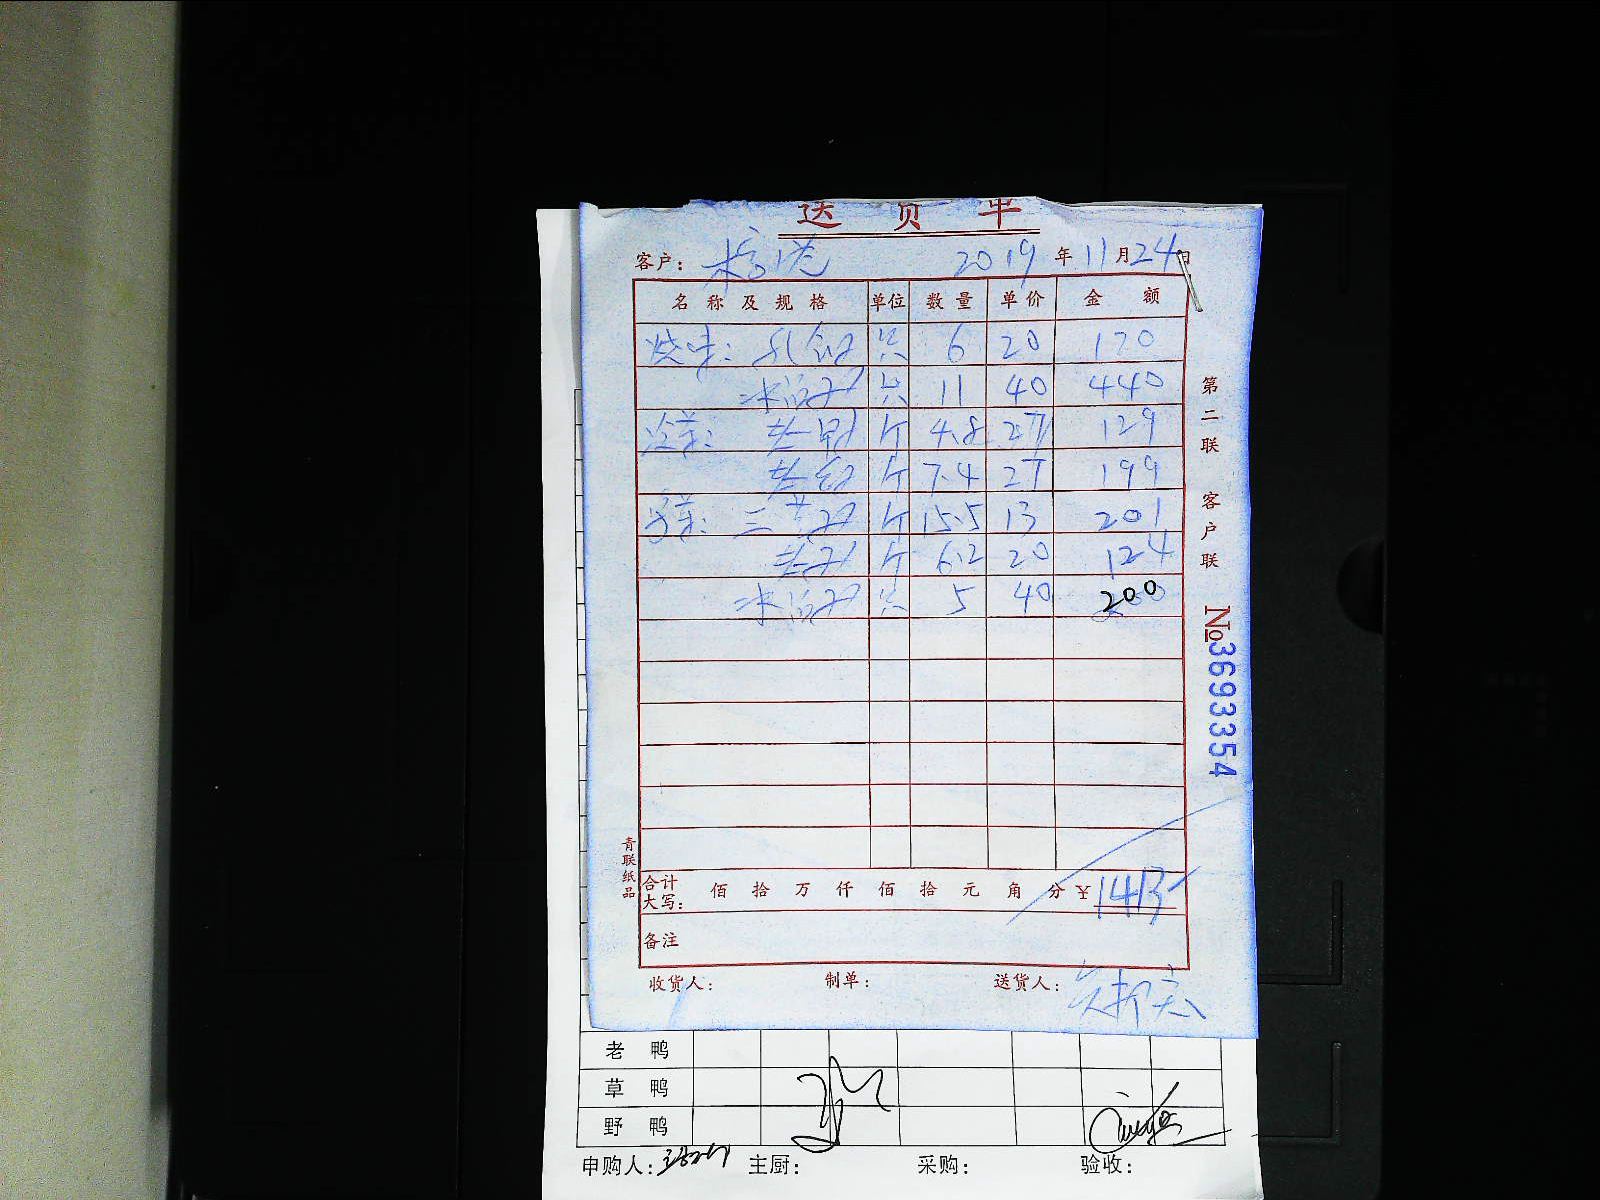 送货单
客户： 2019年11月24日
名称及规格 单位 数量 单价 金额
烧味： 乳鸽 只 6 20 120
只 11 40 440
冷菜： 老鸭 斤 4.8 27 129
老鸽 斤 7.4 27 199
斤 15.5 13 201
斤 6.2 20 124
只 5 40 200
合计大写： 佰 拾 万 仟 佰 拾 元 角 分 ¥ 1413
备注
收货人： 制单： 送货人：
第二联 客户联
№3693354
青联纸品
老鸭
草鸭
野鸭
申购人： 主厨： 采购： 验收：